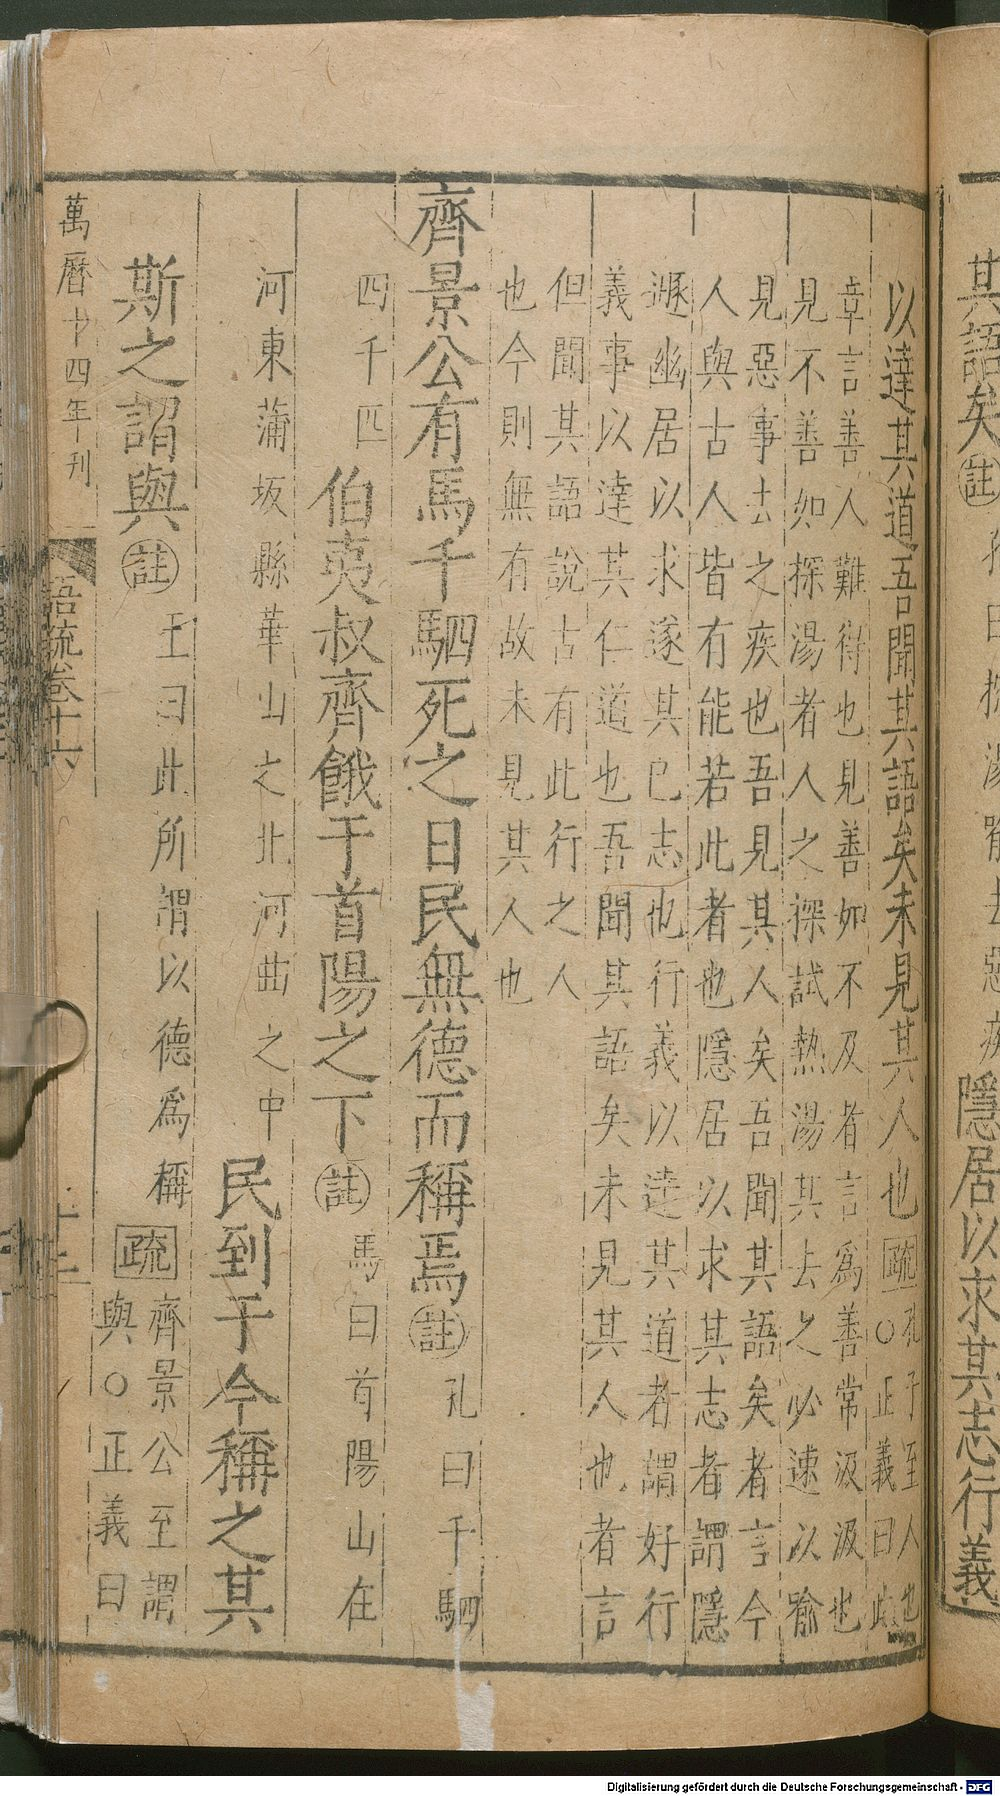 其語矣註
隱居以求其志行義
以達其道吾聞其語矣未見其人也疏孔子至人也
○正義曰此
章言善人難得也見善如不及者言爲善常汲汲也
見不善如探湯者人之探試熱湯其去之必速以喻
見惡事去之疾也吾見其人矣吾聞其語矣者言今
人與古人皆有能若此者也隱居以求其志者謂隱
遯幽居以求遂其已志也行義以達其道者謂好行
義事以達其仁道也吾聞其語矣未見其人也者言
但聞其語說古有此行之人
也今則無有故未見其人也
齊景公有馬千駟死之日民無德而稱焉註孔曰千駟
四千匹伯夷叔齊餓于首陽之下註馬曰首陽山在
河東蒲坂縣華山之北河曲之中民到于今稱之其
斯之謂與註王曰此所謂以德爲稱疏齊景公至謂
與○正義曰
萬曆十四年刊
語疏卷十六
Digitalisierung gefördert durch die Deutsche Forschungsgemeinschaft - DFG